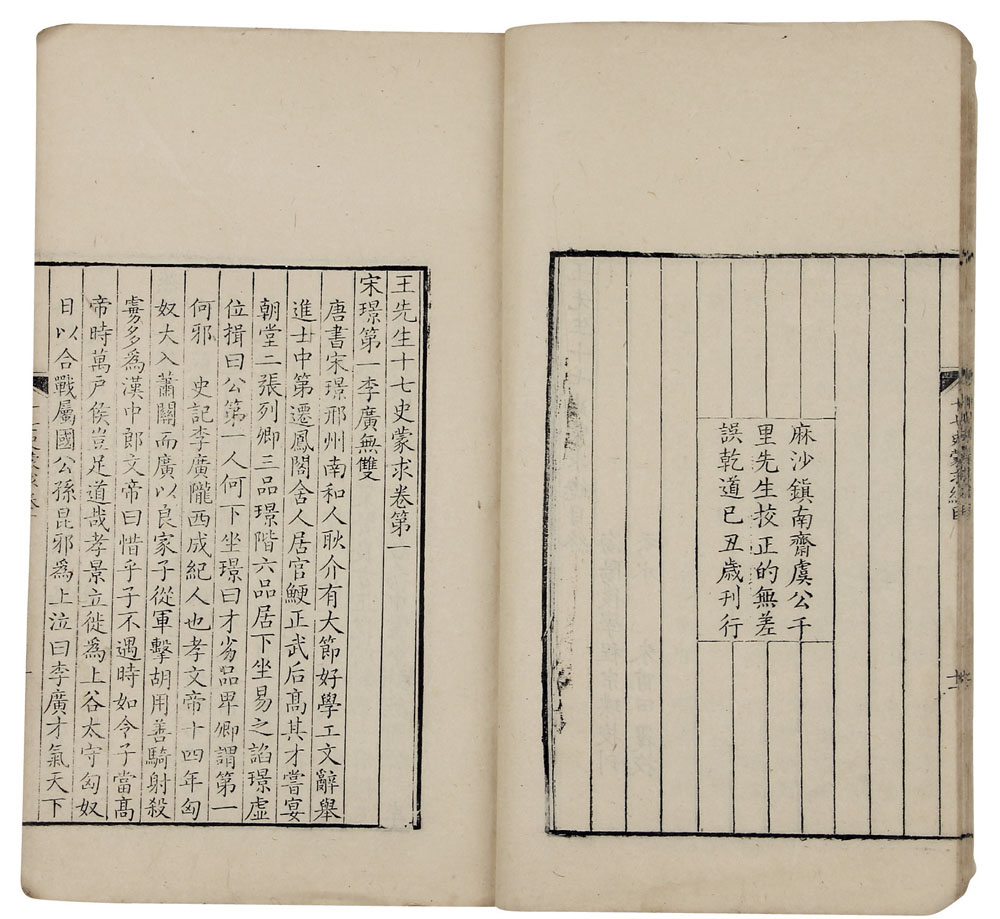 麻沙鎮南齋虞公千
里先生挍正的無差
誤乾道己丑歲刊行
王先生十七史蒙求卷第一
宋璟第一李廣無雙
唐書宋璟邢州南和人耿介有大節好學工文辭舉
進士中第遷鳳閣舍人居官鯁正武后髙其才嘗宴
朝堂二張列卿三品璟階六品居下坐易之諂璟虚
位揖曰公第一人何下坐璟曰才劣品卑卿謂第一
何邪　史記李廣隴西成紀人也孝文帝十四年匈
奴大入蕭關而廣以良家子從軍擊胡用善騎射殺
虜多為漢中郎文帝曰惜乎子不遇時如令子當髙
帝時萬户侯豈足道哉孝景立徙為上谷太守匈奴
日以合戰屬國公孫昆邪為上泣曰李廣才氣天下